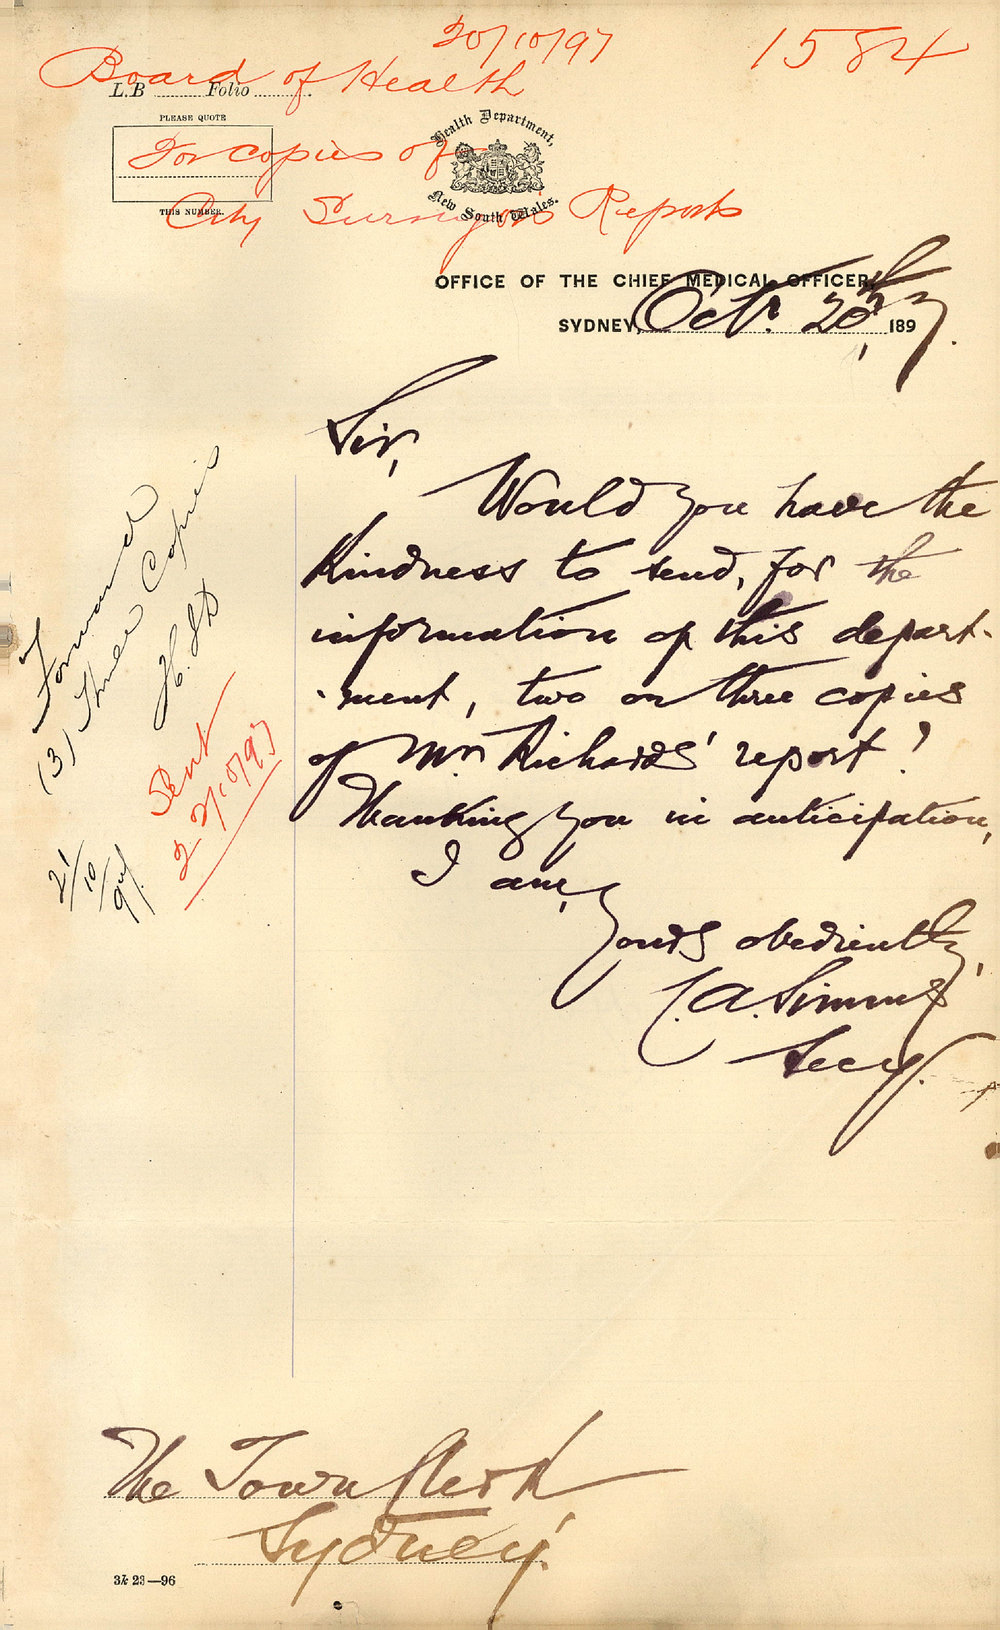 20/10/97
1584
Board of Health
L.B ........ Folio ........
PLEASE QUOTE
For copies of
THIS NUMBER.
City Surveyor's Reports
Health Department,
New South Wales.
OFFICE OF THE CHIEF MEDICAL OFFICER,
SYDNEY, Octr. 20th, 1897.
Sir,
Would you have the
Kindness to send, for the
information of this depart-
-ment, two or three copies
of Mr. Richards' report?
Thanking you in anticipation,
I am,
Yours obediently,
C.A. Simms
Secy.
Forward
(3) three Copies
21/10/97
Sent
21/10/97
The Town Clerk
Sydney.
3k 23—96